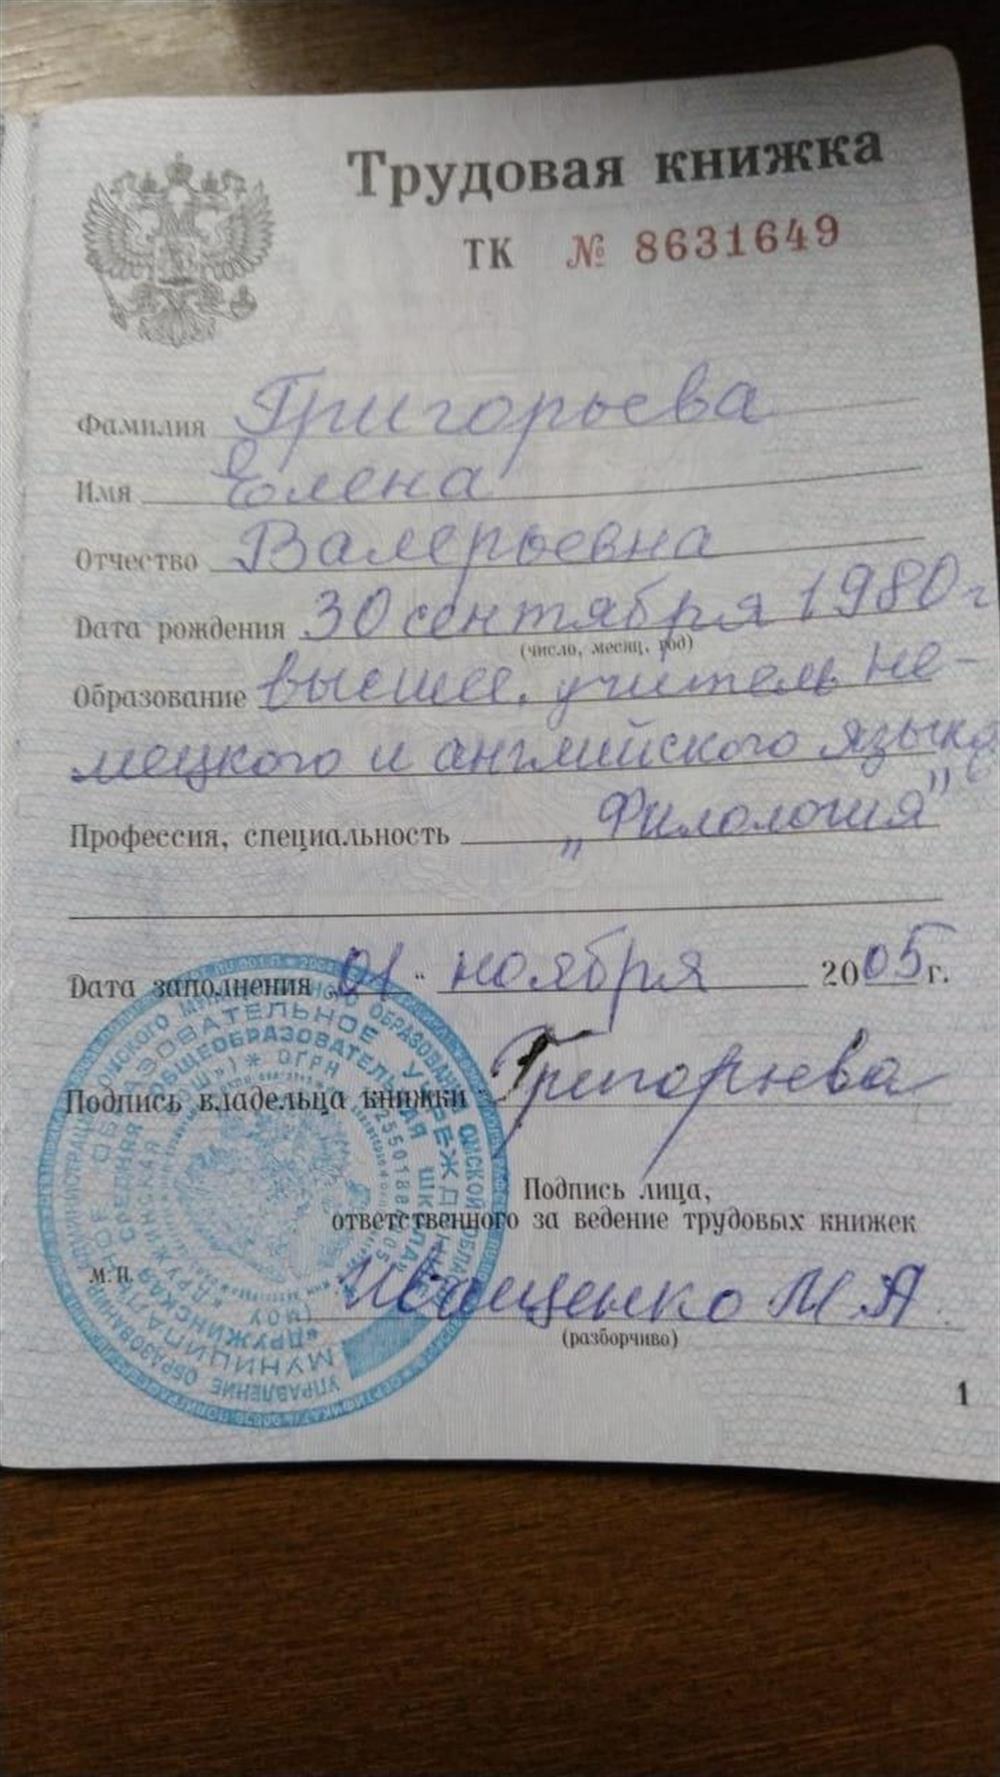 Трудовая книжка
ТК № 8631649
Фамилия Григорьева
Имя Елена
Отчество Валерьевна
Дата рождения 30 сентября 1980 г
(число, месяц, год)
Образование высшее, учитель не-
мецкого и английского языка
Профессия, специальность „Филология"
Дата заполнения „01" ноября 2005 г.
Подпись владельца книжки Григорьева
Подпись лица,
ответственного за ведение трудовых книжек
М.П.
Иващенко М А
(разборчиво)
1
МУНИЦИПАЛЬНОЕ ОБРАЗОВАТЕЛЬНОЕ УЧРЕЖДЕНИЕ
«ДРУЖИНСКАЯ СРЕДНЯЯ ОБЩЕОБРАЗОВАТЕЛЬНАЯ ШКОЛА»